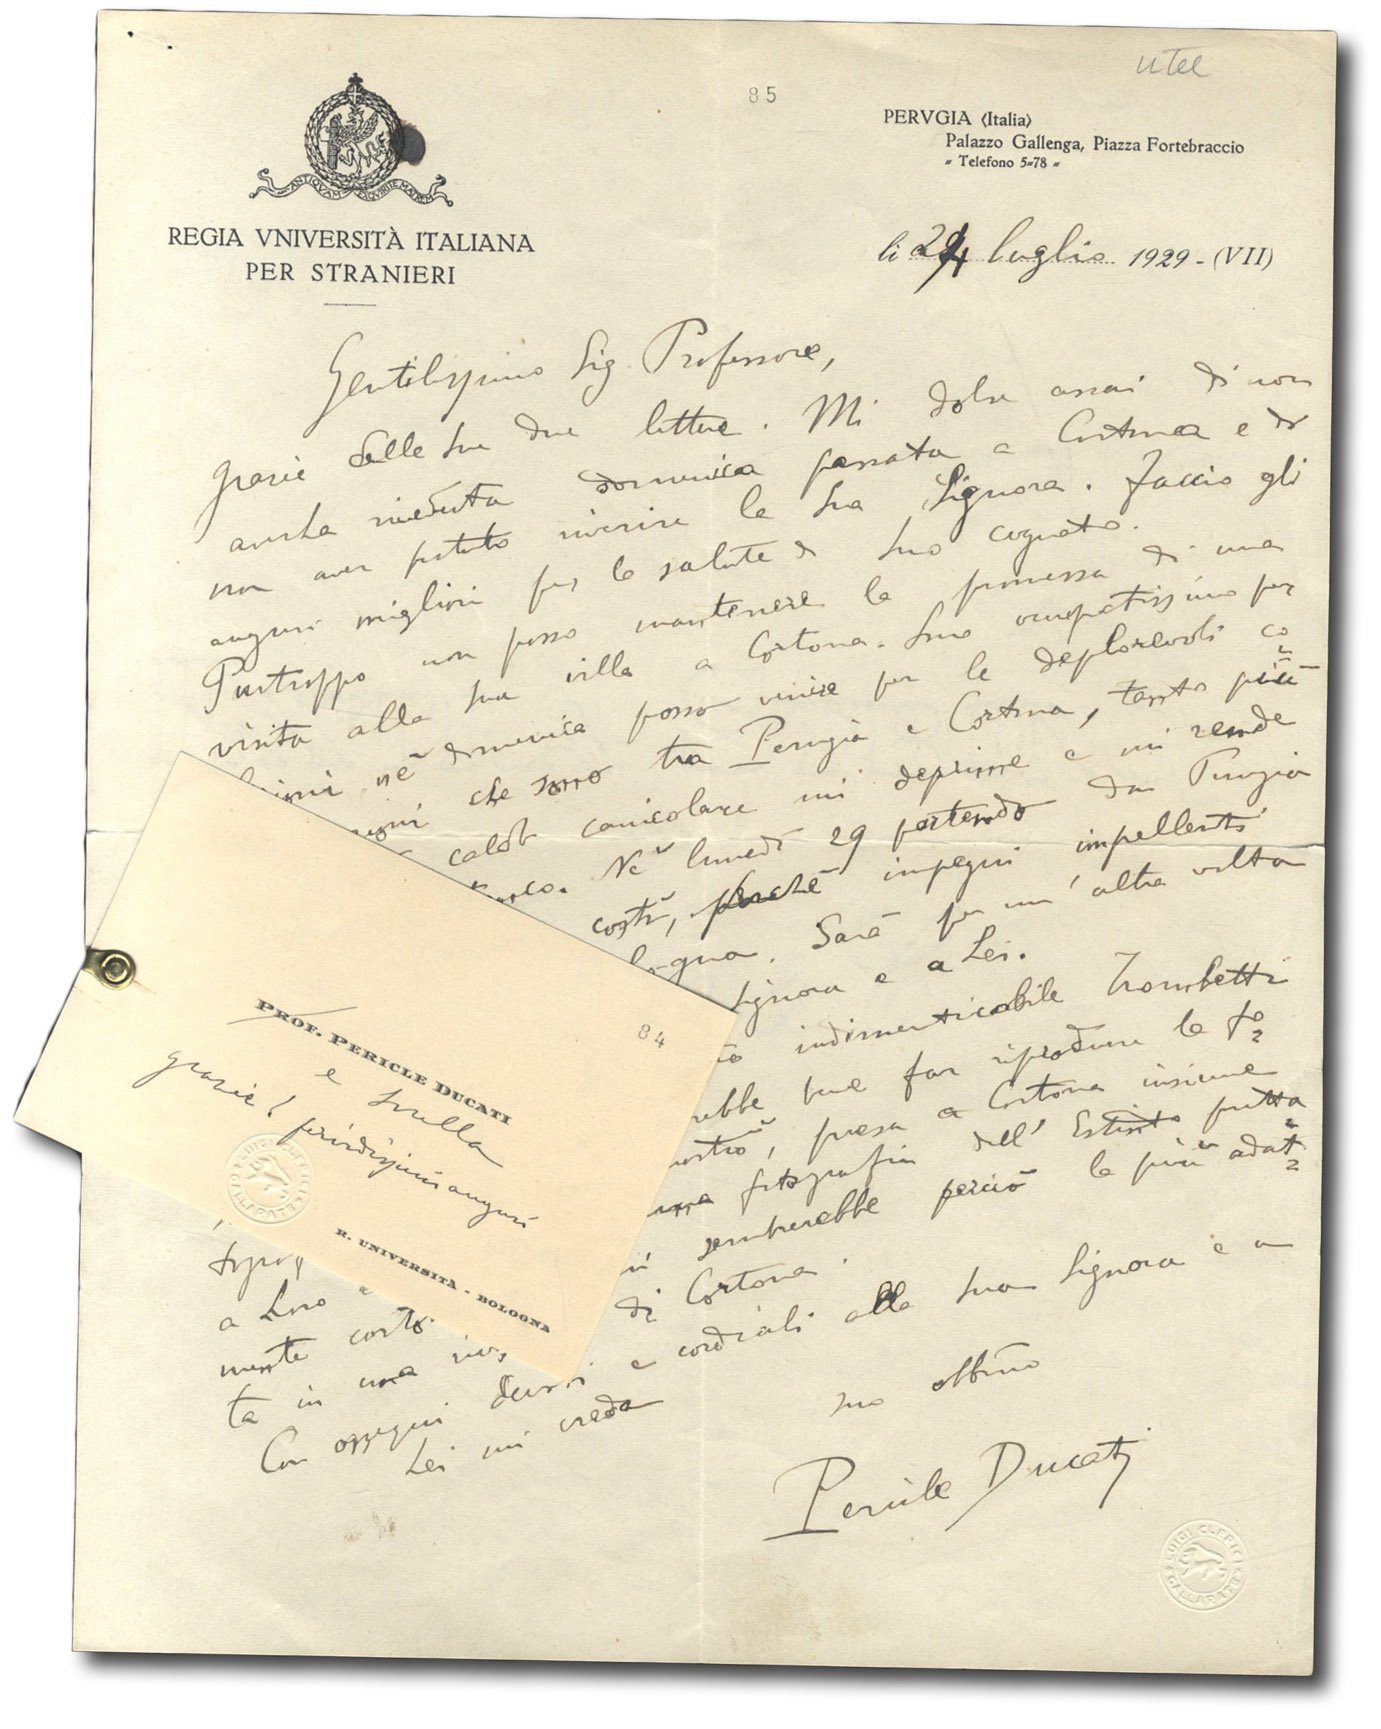 utel
85
PERVGIA (Italia)
Palazzo Gallenga, Piazza Fortebraccio
Telefono 5=78
ANTIQVAM EXQVIRITE MATREM
REGIA VNIVERSITÀ ITALIANA
PER STRANIERI
li 24 luglio 1929 - (VII)
Gentilissimo Sig. Professore,
grazie delle sue due lettere. Mi dolse assai di non
averla riveduta domenica passata a Cortona e di
non aver potuto riverire la sua Signora. Faccio gli
auguri migliori per la salute di suo cognato.
Purtroppo non posso mantenere la promessa di una
visita alla sua villa a Cortona. Sono occupatissimo per
nè domenica posso venire per le deplorevoli co=
che sono tra Perugia e Cortona, tanto più
calor canicolare mi deprime e mi rende
Nè lunedì 29 partendo da Perugia
costì, perchè impegni impellenti
Sarà per un'altra volta
Signora e a Lei.
indimenticabile Trombetti
rebbe bene far riprodurre la fo=
presa a Cortona insieme
fotografia dell'Estinto fatta
sembrerebbe perciò la più adat=
a Loro
mente di Cortona.
ta in una
Con ossequi devoti e cordiali alla sua Signora e a
Lei mi creda
suo obbmo
Pericle Ducati
LUIGI CLERICI
GALLARATE
84
PROF. PERICLE DUCATI
e sorella
grazie! fervidissimi auguri
LUIGI CLERICI
GALLARATE
R. UNIVERSITÀ - BOLOGNA